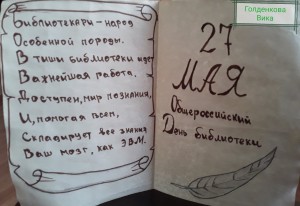 Библиотекари – народ
Особенной породы.
В тиши библиотеки идёт
Важнейшая работа,
Доступен мир познания,
И, помогая всем,
Складирует все знания
Ваш мозг, как ЭВМ.
Голденкова
Вика
27
МАЯ
Общероссийский
День библиотеки